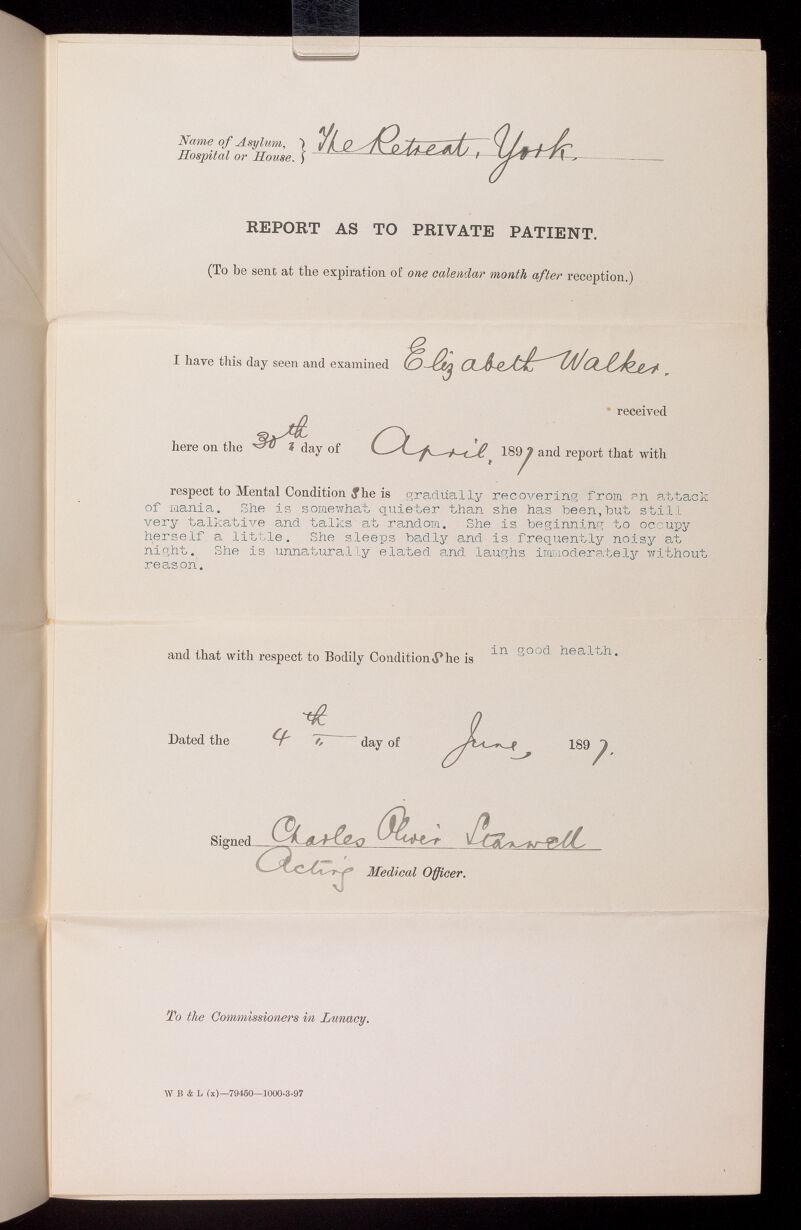 Name of Asylum,
Hospital or House. } The Retreat, York.
REPORT AS TO PRIVATE PATIENT.
(To be sent at the expiration of one calendar month after reception.)
I have this day seen and examined Elizabeth Walker.
received
here on the 30th day of April, 1897 and report that with
respect to Mental Condition She is gradually recovering from an attack
of mania. She is somewhat quieter than she has been,but still
very talkative and talks at random. She is beginning to occupy
herself a little. She sleeps badly and is frequently noisy at
night. She is unnaturally elated and laughs immoderately without
reason.
and that with respect to Bodily Condition She is in good health.
Dated the 4th day of June, 1897.
Signed Charles Oliver Stanwell
Acting Medical Officer.
To the Commissioners in Lunacy.
W B & L (x)—79450—1000-3-97